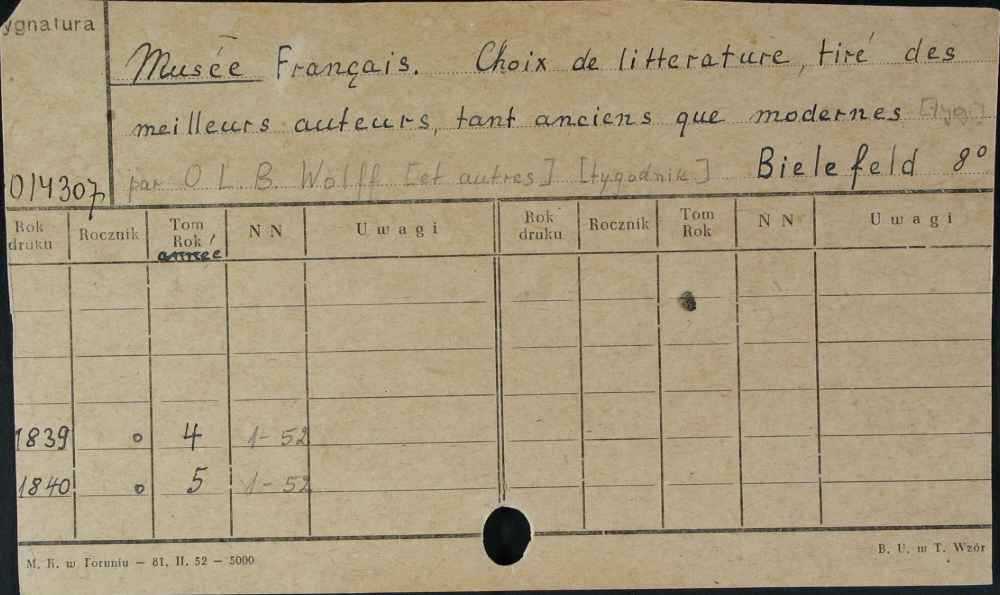 ygnatura
Musée Français. Choix de litterature, tiré des
meilleurs auteurs, tant anciens que modernes [tyg.]
014307 par O L. B. Wolff [et autres] [tygodnik] Bielefeld 8°
Rok druku Rocznik Tom Rok/ année N N Uwagi Rok druku Rocznik Tom Rok N N Uwagi
1839 o 4 1-52
1840 o 5 1-52
M. K. w Toruniu — 81. II. 52 — 5000 B. U. w T. Wzór